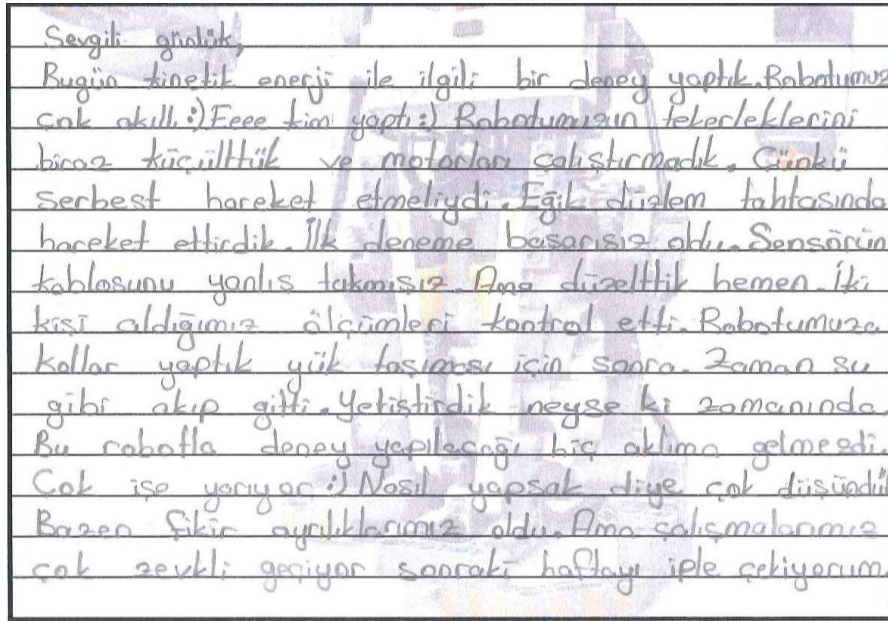 Sevgili günlük,
Bugün kinetik enerji ile ilgili bir deney yaptık. Robotumuz
çok akıllı :) Eeee kim yaptı :) Robotumuzun tekerleklerini
biraz küçülttük ve motorları çalıştırmadık. Çünkü
serbest hareket etmeliydi. Eğik düzlem tahtasında
hareket ettirdik. İlk deneme başarısız oldu. Sensörün
kablosunu yanlış takmışız. Ama düzelttik hemen. İki
kişi aldığımız ölçümleri kontrol etti. Robotumuza
kollar yaptık yük taşıması için sonra. Zaman su
gibi akıp gitti. Yetiştirdik neyse ki zamanında.
Bu robotla deney yapılacağı hiç aklıma gelmezdi.
Çok işe yarıyor :) Nasıl yapsak diye çok düşündük
Bazen fikir ayrılıklarımız oldu. Ama çalışmalarımız
çok zevkli geçiyor sonraki haftayı iple çekiyorum.